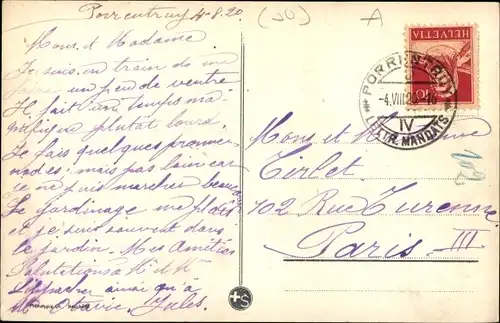 Porrentruy 4-8.20
(30)
A
Mons. et Madame
Je suis en train de me
faire un peu de ventre
Il fait un temps ma-
gnifique plutot lourd.
Je fais quelques prome-
nades; mais pas loin car
je ne puis marcher beaucoup
Le jardinage me plait
et je suis souvent dans
le jardin. Mes Amitiés
Salutations à Mr et Mme
ainsi qu'à
Octavie. Jules.
HELVETIA
PORRENTRUY
-4.VIII.2
IV
LETTR. MANDATS
Mons et Madame
Tirlet
102 Rue Turenne
Paris III
+S